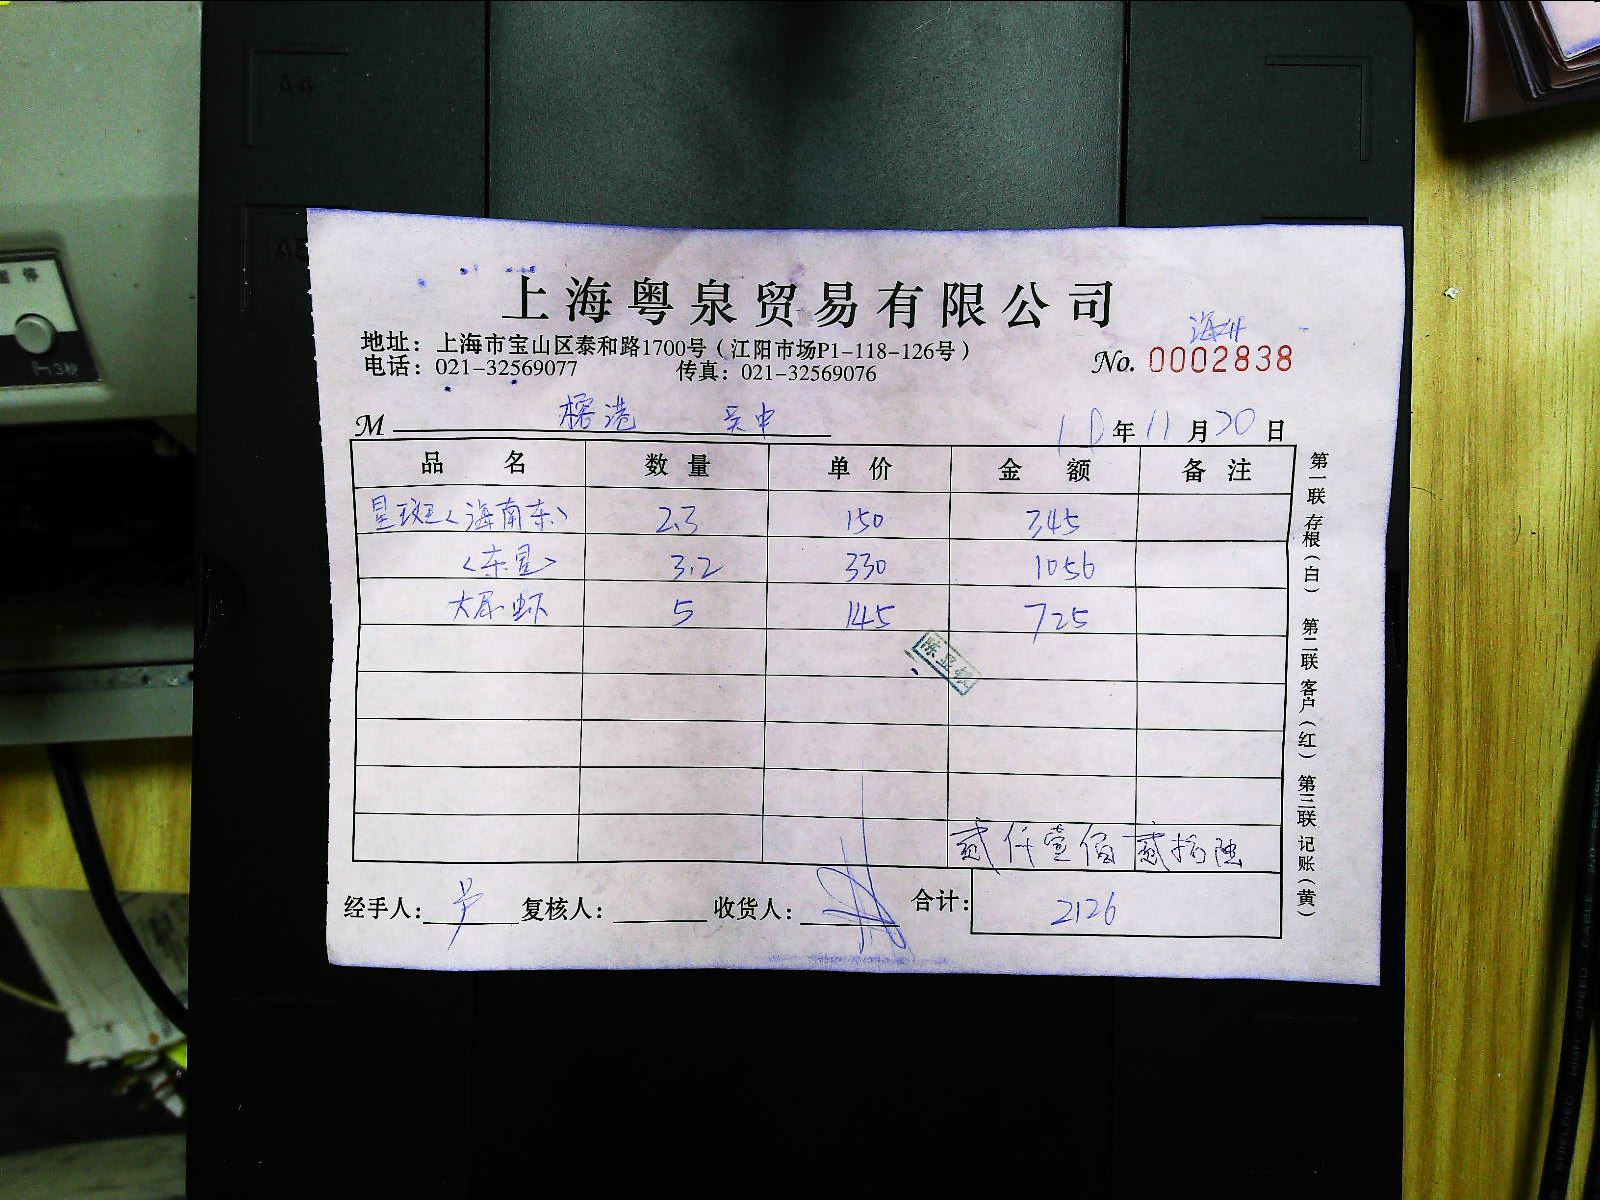 上海粤泉贸易有限公司
地址：上海市宝山区泰和路1700号（江阳市场P1-118-126号）
电话：021-32569077 传真：021-32569076
No. 0002838
M 榕港 吴中 10年11月20日
品名 数量 单价 金额 备注
星斑<海南东> 2.3 150 345
<东星> 3.2 330 1056
大尿虾 5 145 725
贰仟壹佰贰拾陆
经手人： 复核人： 收货人： 合计： 2126
第一联 存根（白） 第二联 客户（红） 第三联 记账（黄）
A4
A5
3秒